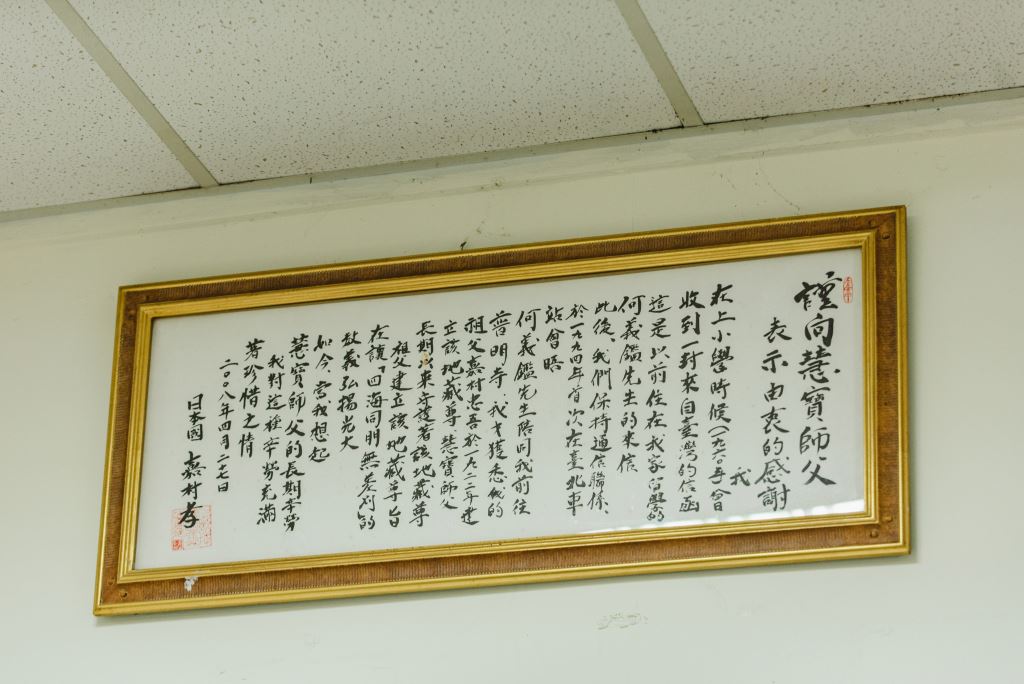 謹向慧寶師父
表示由衷的感謝
我
在上小學時候(一九六〇年)會日
收到一封來自臺灣的信函
這是以前住在我家留學的
何義鑑先生的來信
此後、我們保持通信聯係、
於一九九四年首次在臺北車
站會晤
何義鑑先生陪同我前往
普明寺、我才獲悉我的
祖父嘉村忠吾於一九二二年建
立該地藏尊 慧寶師父
長期以來守護著該地藏尊
祖父建立該地藏尊旨
在讓「四海同胞 無差別」的
教義弘揚光大
如今、當我想起
慧寶師父的長期辛勞
我對這種辛勞充滿
著珍惜之情
二〇〇八年四月二七日
日本國 嘉村孝